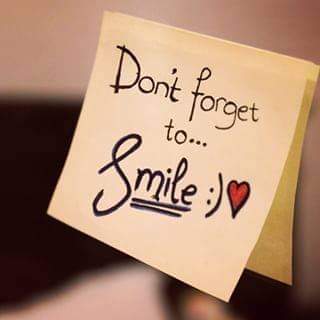 Don't forget
to...
Smile :)❤